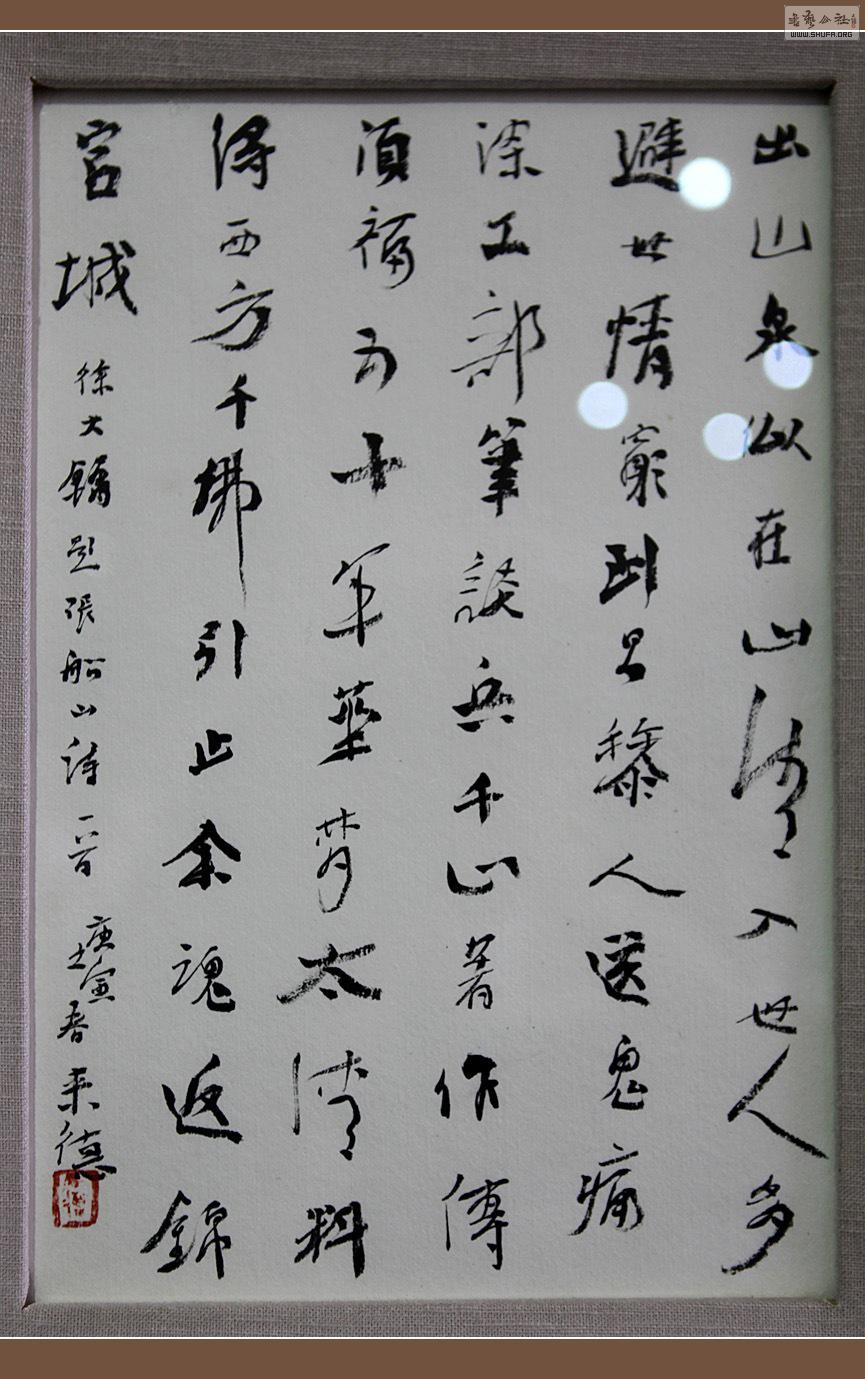 出山泉似在山清入世人多
避世情窮到昌黎人送鬼痛
深工部筆談兵千山著作傳
須福五十年華夢太清料
得西方千佛引止余魂返錦
官城
徐大鏞題張船山詩一首 庚寅春 来德
書藝公社
WWW.SHUFA.ORG